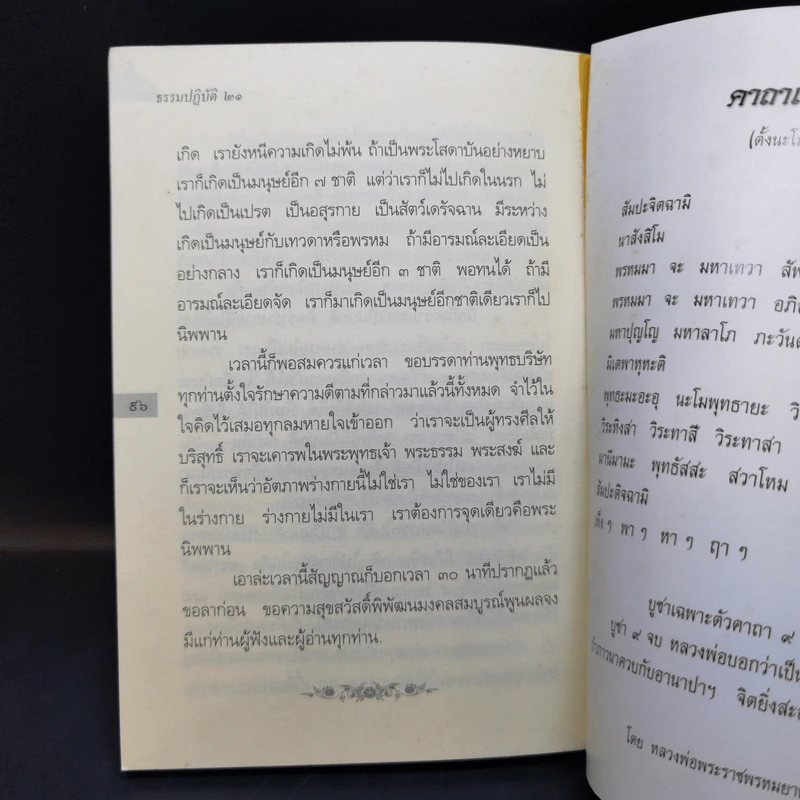 ธรรมปฏิบัติ ๒๑
เกิด เรายังหนีความเกิดไม่พ้น ถ้าเป็นพระโสดาบันอย่างหยาบ
เราก็เกิดเป็นมนุษย์อีก ๗ ชาติ แต่ว่าเราก็ไม่ไปเกิดในนรก ไม่
ไปเกิดเป็นเปรต เป็นอสุรกาย เป็นสัตว์เดรัจฉาน มีระหว่าง
เกิดเป็นมนุษย์กับเทวดาหรือพรหม ถ้ามีอารมณ์ละเอียดเป็น
อย่างกลาง เราก็เกิดเป็นมนุษย์อีก ๓ ชาติ พอทนได้ ถ้ามี
อารมณ์ละเอียดจัด เราก็มาเกิดเป็นมนุษย์อีกชาติเดียวเราก็ไป
นิพพาน
เวลานี้ก็พอสมควรแก่เวลา ขอบรรดาท่านพุทธบริษัท
ทุกท่านตั้งใจรักษาความดีตามที่กล่าวมาแล้วนี้ทั้งหมด จำไว้ใน
ใจคิดไว้เสมอทุกลมหายใจเข้าออก ว่าเราจะเป็นผู้ทรงศีลให้
บริสุทธิ์ เราจะเคารพในพระพุทธเจ้า พระธรรม พระสงฆ์ และ
ก็เราจะเห็นว่าอัตภาพร่างกายนี้ไม่ใช่เรา ไม่ใช่ของเรา เราไม่มี
ในร่างกาย ร่างกายไม่มีในเรา เราต้องการจุดเดียวคือพระ
นิพพาน
เอาล่ะเวลานี้สัญญาณก็บอกเวลา ๓๐ นาทีปรากฏแล้ว
ขอลาก่อน ขอความสุขสวัสดิ์พิพัฒนมงคลสมบูรณ์พูนผลจง
มีแก่ท่านผู้ฟังและผู้อ่านทุกท่าน.
๕๖
คาถา
(ตั้งนะโม
สัมปะจิตฉามิ
นาสังสิโม
พรหมมา จะ มหาเทวา
พรหมมา จะ มหาเทวา
มหาปุญโญ มหาลาโภ
มิเตพาหุหะติ
พุทธะมะอะอุ นะโมพุทธายะ
วิระทาสี วิระทาสา
มานีมามะ พุทธัสสะ สวาโหม
สัมปะติจฉามิ
เพ็งๆ พาๆ หาๆ ฤาๆ
บูชาเฉพาะตัวคาถา ๙
บูชา ๙ จบ หลวงพ่อบอกว่าเป็น
ควบกับอานาปาฯ
โดย หลวงพ่อพระราชพรหมยาน